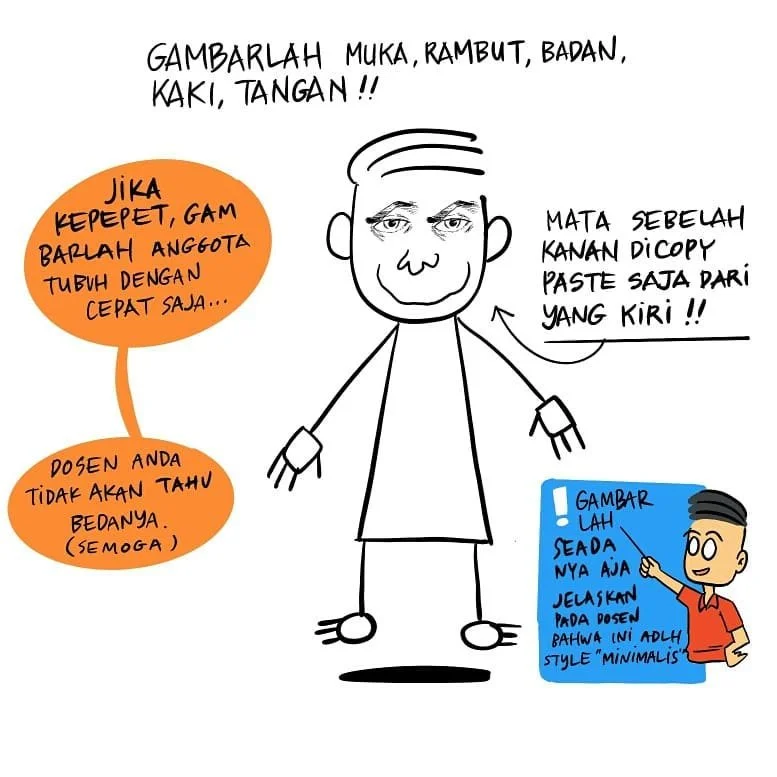 GAMBARLAH MUKA, RAMBUT, BADAN,
KAKI, TANGAN !!
JIKA
KEPEPET, GAM
BARLAH ANGGOTA
TUBUH DENGAN
CEPAT SAJA...
MATA SEBELAH
KANAN DICOPY
PASTE SAJA DARI
YANG KIRI !!
DOSEN ANDA
TIDAK AKAN TAHU
BEDANYA.
(SEMOGA)
! GAMBAR
LAH
SEADA
NYA AJA
JELASKAN
PADA DOSEN
BAHWA INI ADLH
STYLE "MINIMALIS"